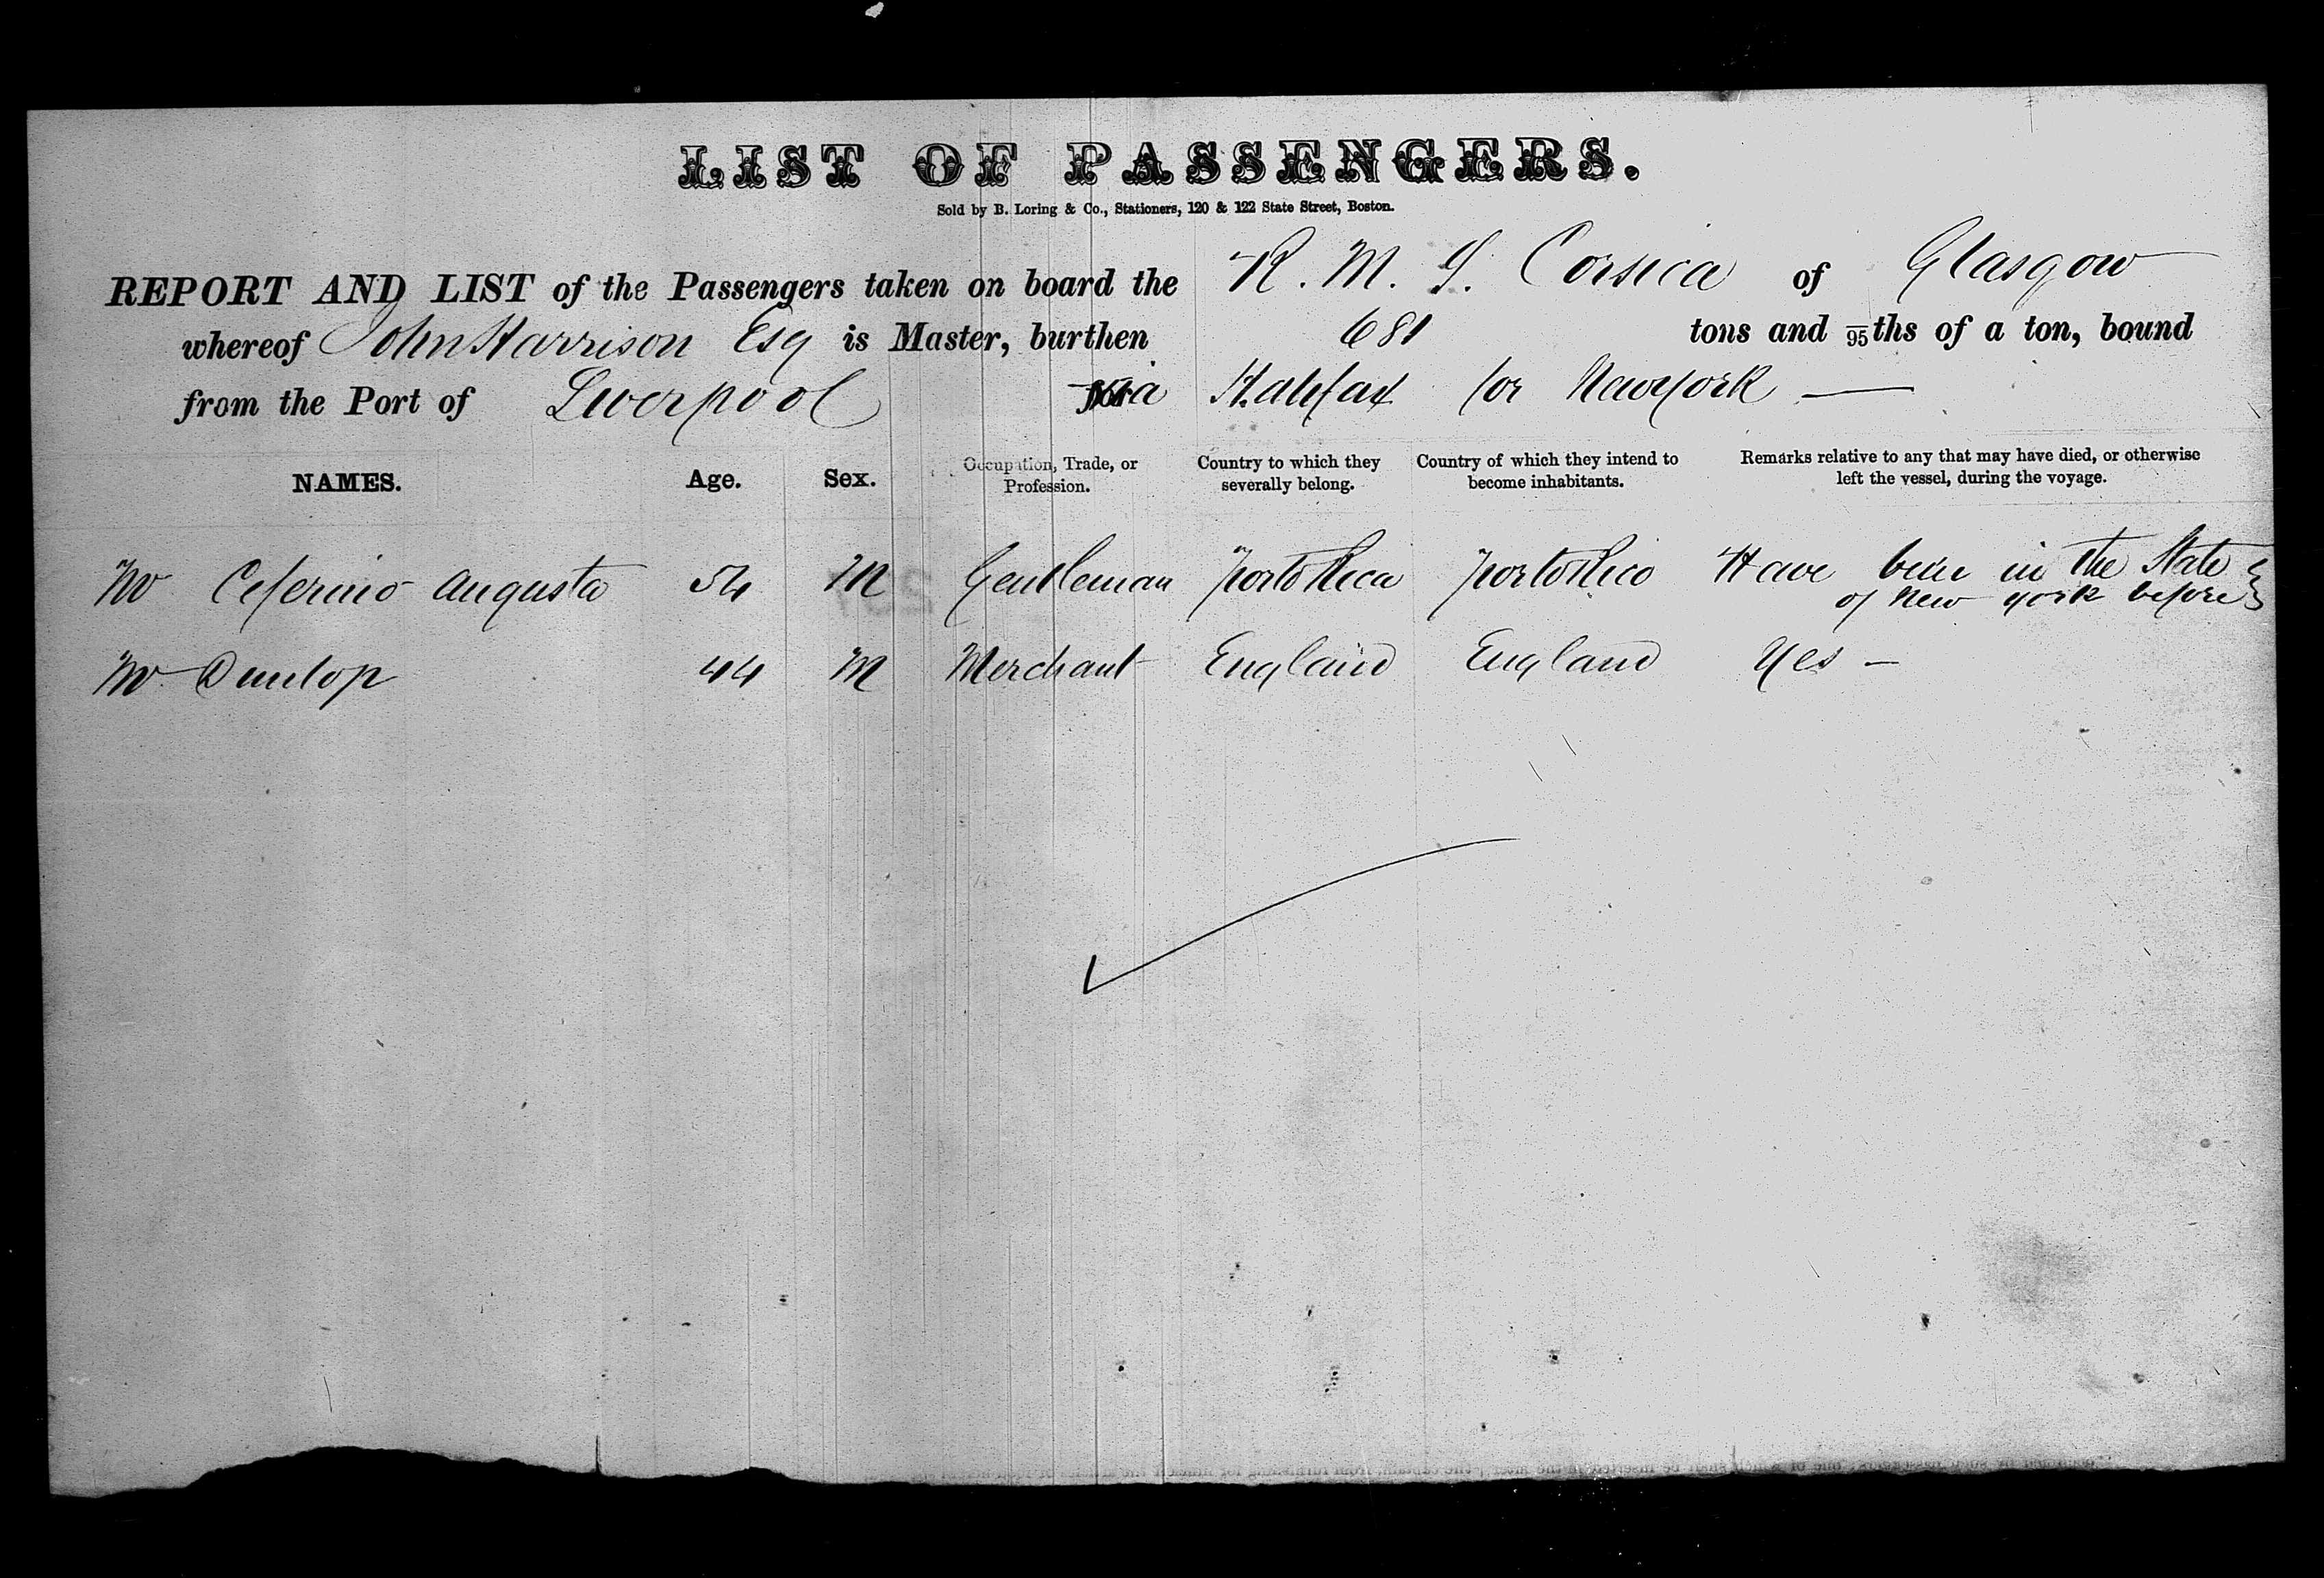 LIST OF PASSENGERS.
Sold by B. Loring & Co., Stationers, 120 & 122 State Street, Boston.
REPORT AND LIST of the Passengers taken on board the R. M. S. Corsica of Glasgow
whereof John Harrison Esq is Master, burthen 681 tons and /95ths of a ton, bound
from the Port of Liverpool via Halifax for New York —
NAMES. Age. Sex. Occupation, Trade, or Profession. Country to which they severally belong. Country of which they intend to become inhabitants. Remarks relative to any that may have died, or otherwise left the vessel, during the voyage.
Mr Ceferino Augusta 54 M Gentleman Porto Rica Porto Rico Have been in the State
of New York before
Mr Dunlop 44 M Merchant England England Yes —